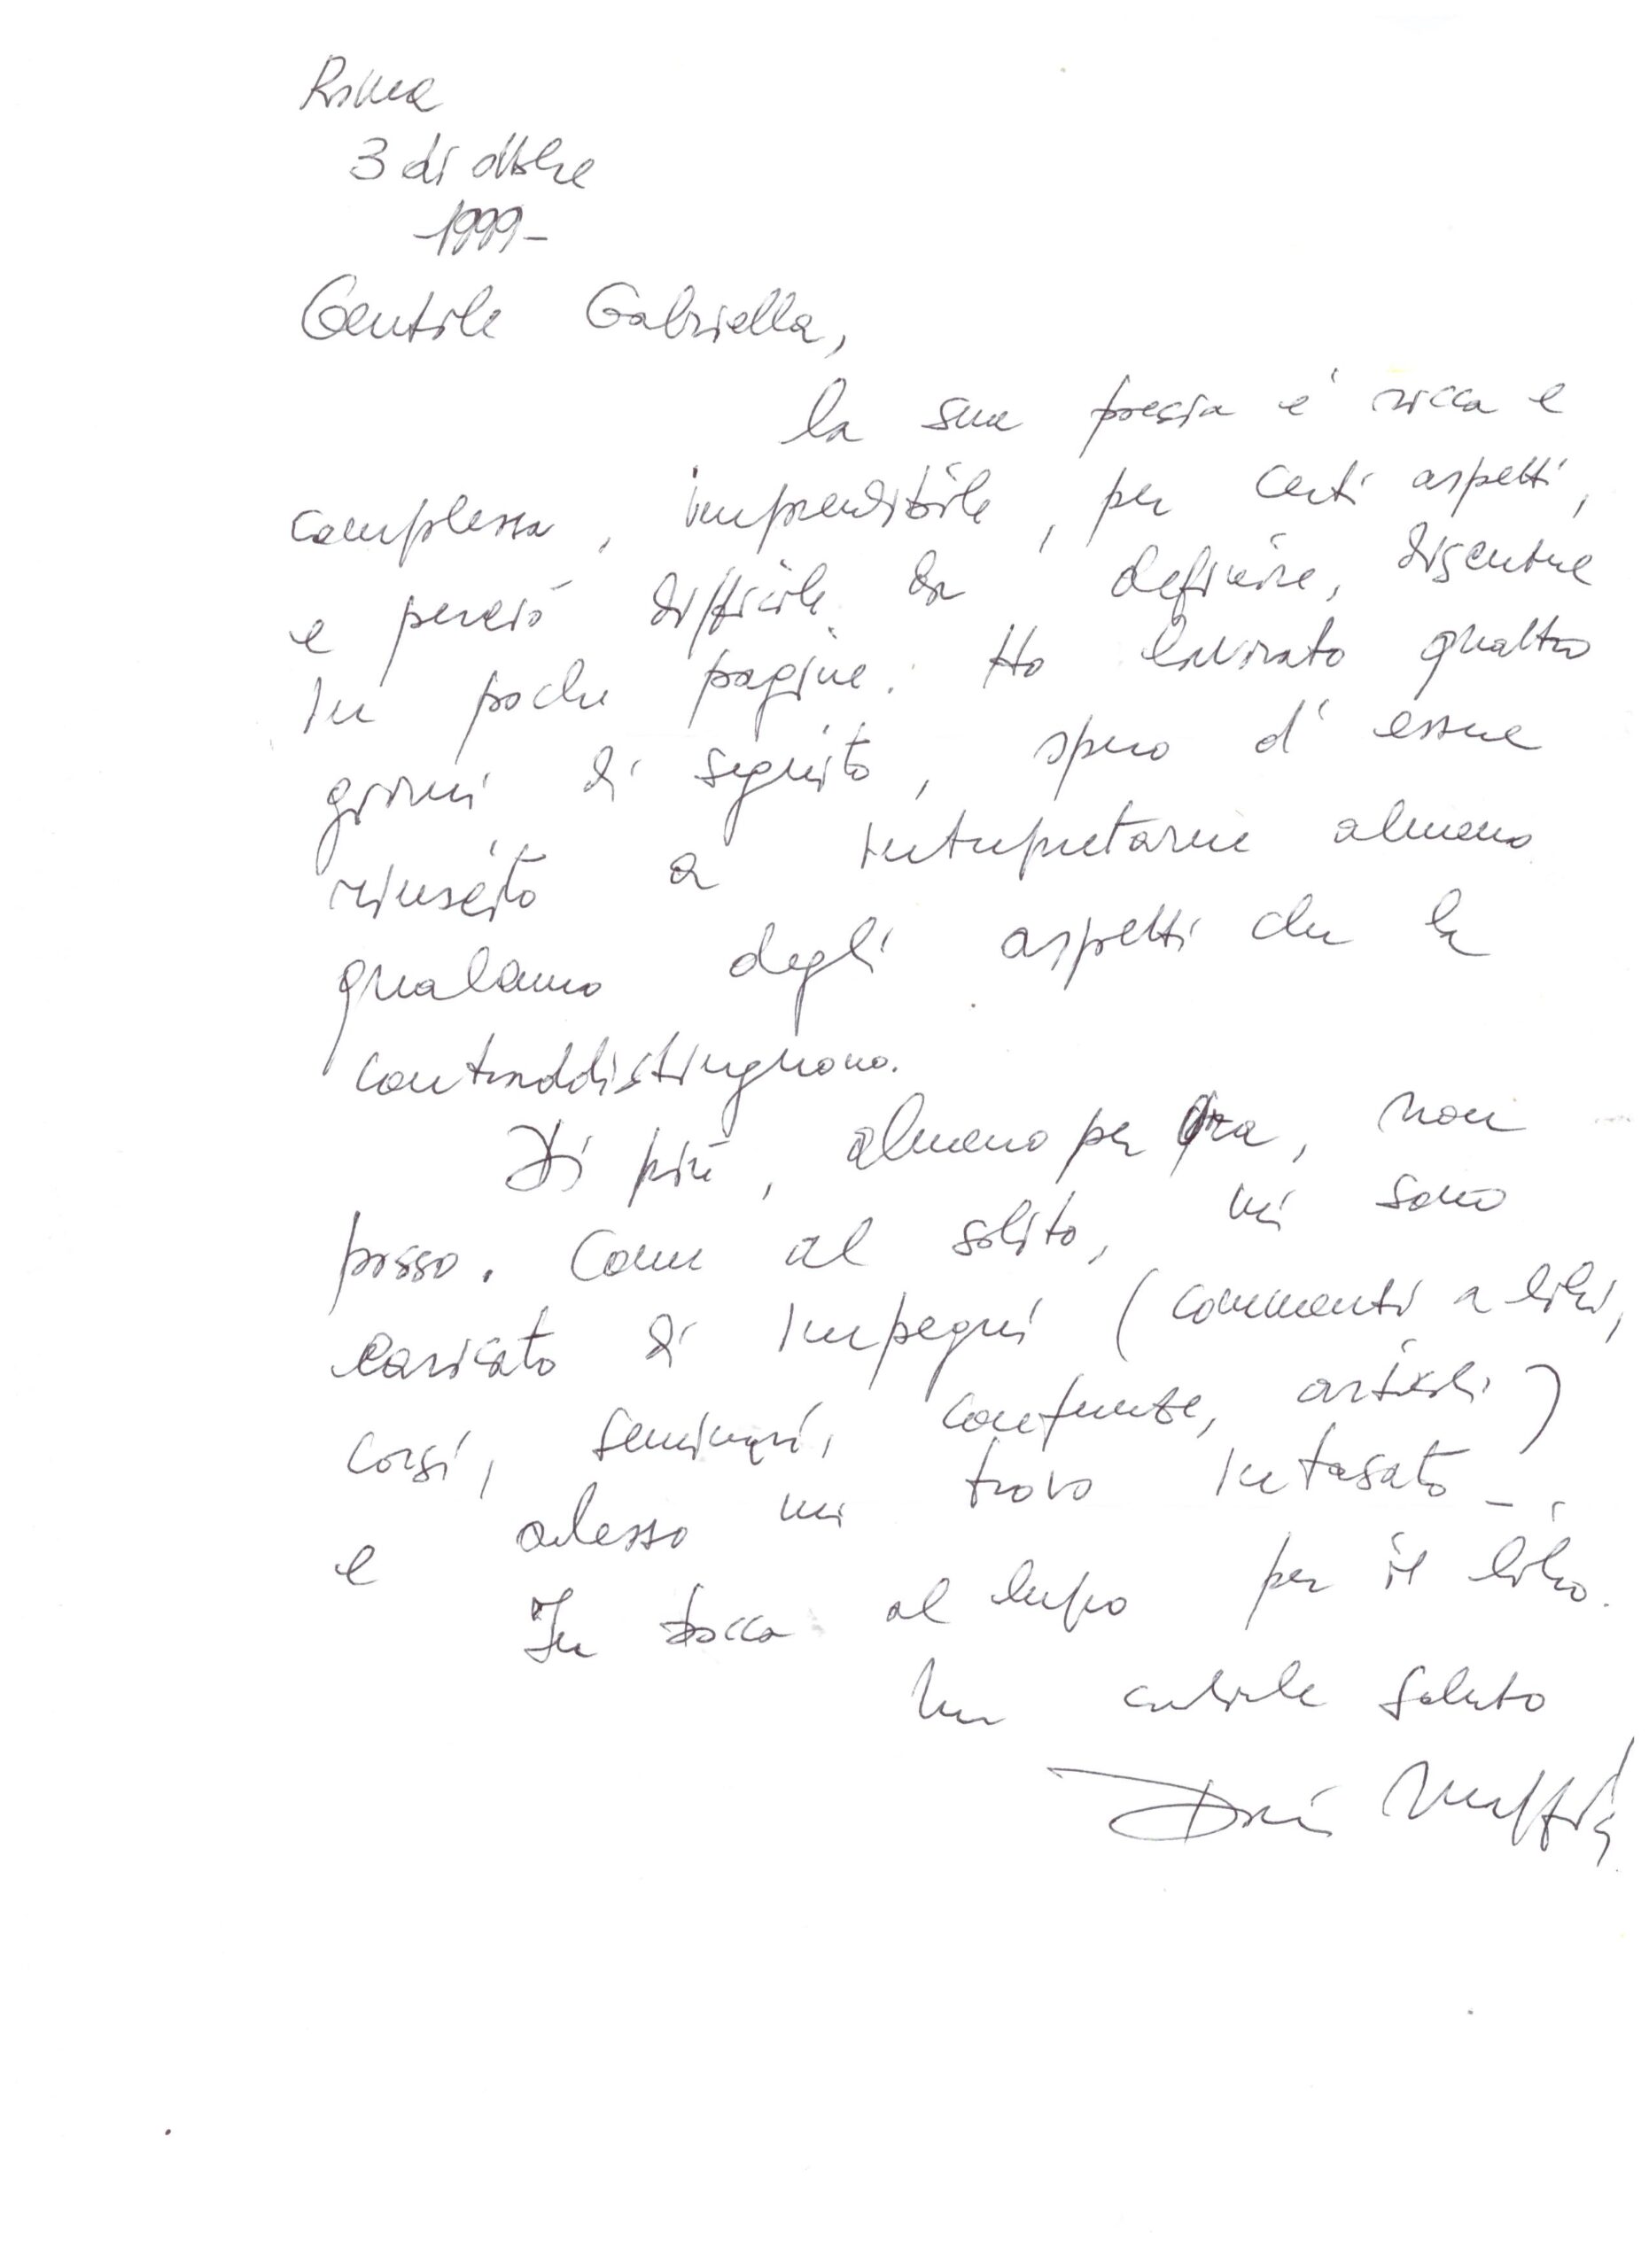 Roma
3 di ottobre
-1999-
Gentile Gabriella,
la sua poesia é ricca e
complessa, imprendibile, per certi aspetti,
e perciò difficile da definire, discutere
in poche pagine. Ho lavorato quattro
giorni di seguito, spero d'essere
riuscito a interpretarne almeno
qualcuno degli aspetti che la
contraddistinguono.
Di più, almeno per ora, non
posso. Come al solito, mi sono
caricato di impegni (commenti a libri,
corsi, seminari, conferenze, articoli)
e adesso mi trovo intasato -.
In bocca al lupo per il libro.
Un cordiale saluto